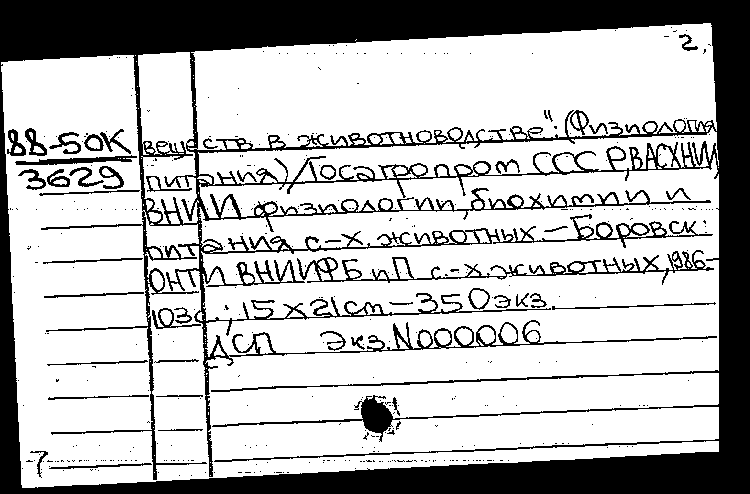 2.
88-50К
3629
веществ в животноводстве": (Физиология
питания)/Госагропром СССР, ВАСХНИЛ,
ВНИИ физиологии, биохимии и
питания с-х. животных. – Боровск:
ОНТИ ВНИИФБиП с.-х. животных, 1986-
103с.; 15 х 21 cm. – 350 экз.
ДСП Экз. N000006
7